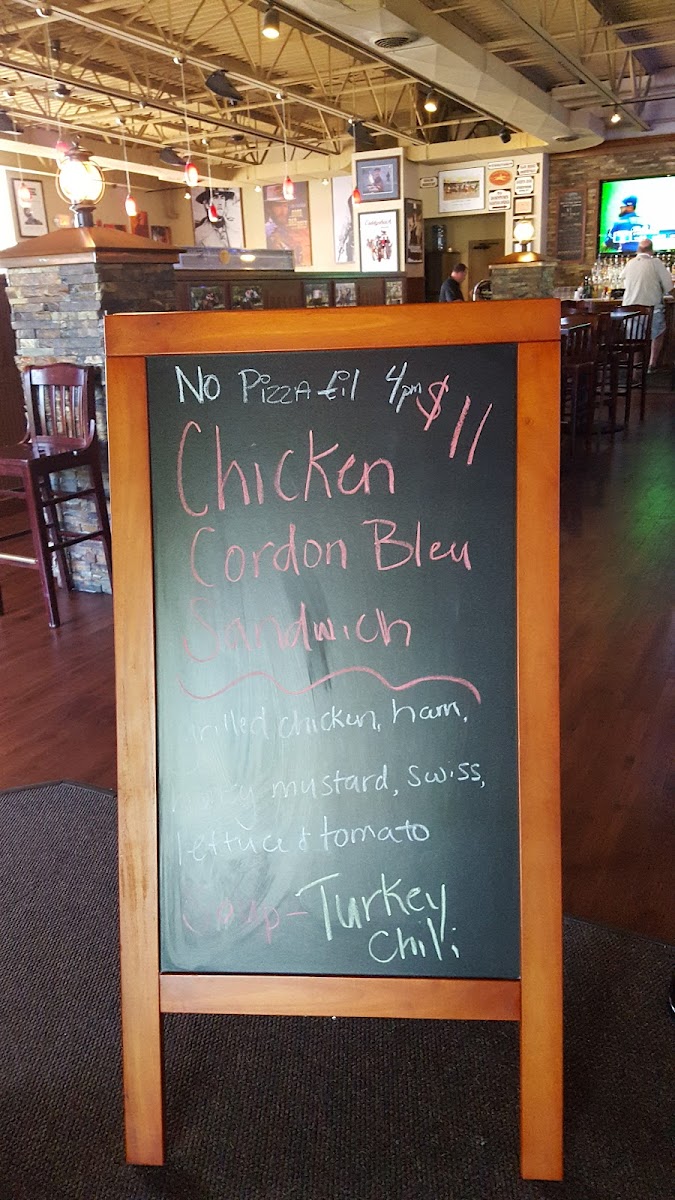 No Pizza til 4pm
$11
Chicken
Cordon Bleu
Sandwich
grilled chicken, ham,
honey mustard, swiss,
lettuce & tomato
Soup - Turkey
Chili